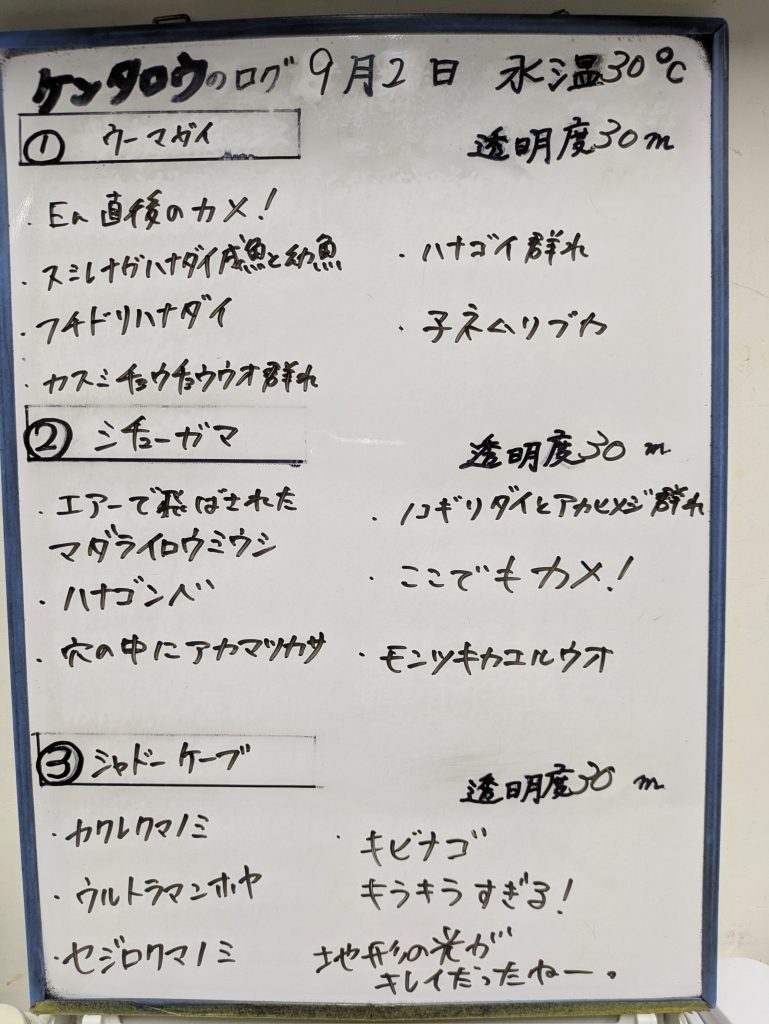 ケンタロウのログ 9月2日 水温30℃
① ウーマガイ
透明度30m
・En直後のカメ!
・スミレナガハナダイ成魚と幼魚
・フチドリハナダイ
・カスミチョウチョウウオ群れ
・ハナゴイ群れ
・子ネムリブカ
② シチューガマ
透明度30m
・エアーで飛ばされた
マダライロウミウシ
・ハナゴンベ
・穴の中にアカマツカサ
・ノコギリダイとアカヒメジ群れ
・ここでもカメ!
・モンツキカエルウオ
③ シャドーケーブ
透明度30m
・カクレクマノミ
・ウルトラマンホヤ
・セジロクマノミ
・キビナゴ
キラキラすぎる!
地形の光が
キレイだったねー。